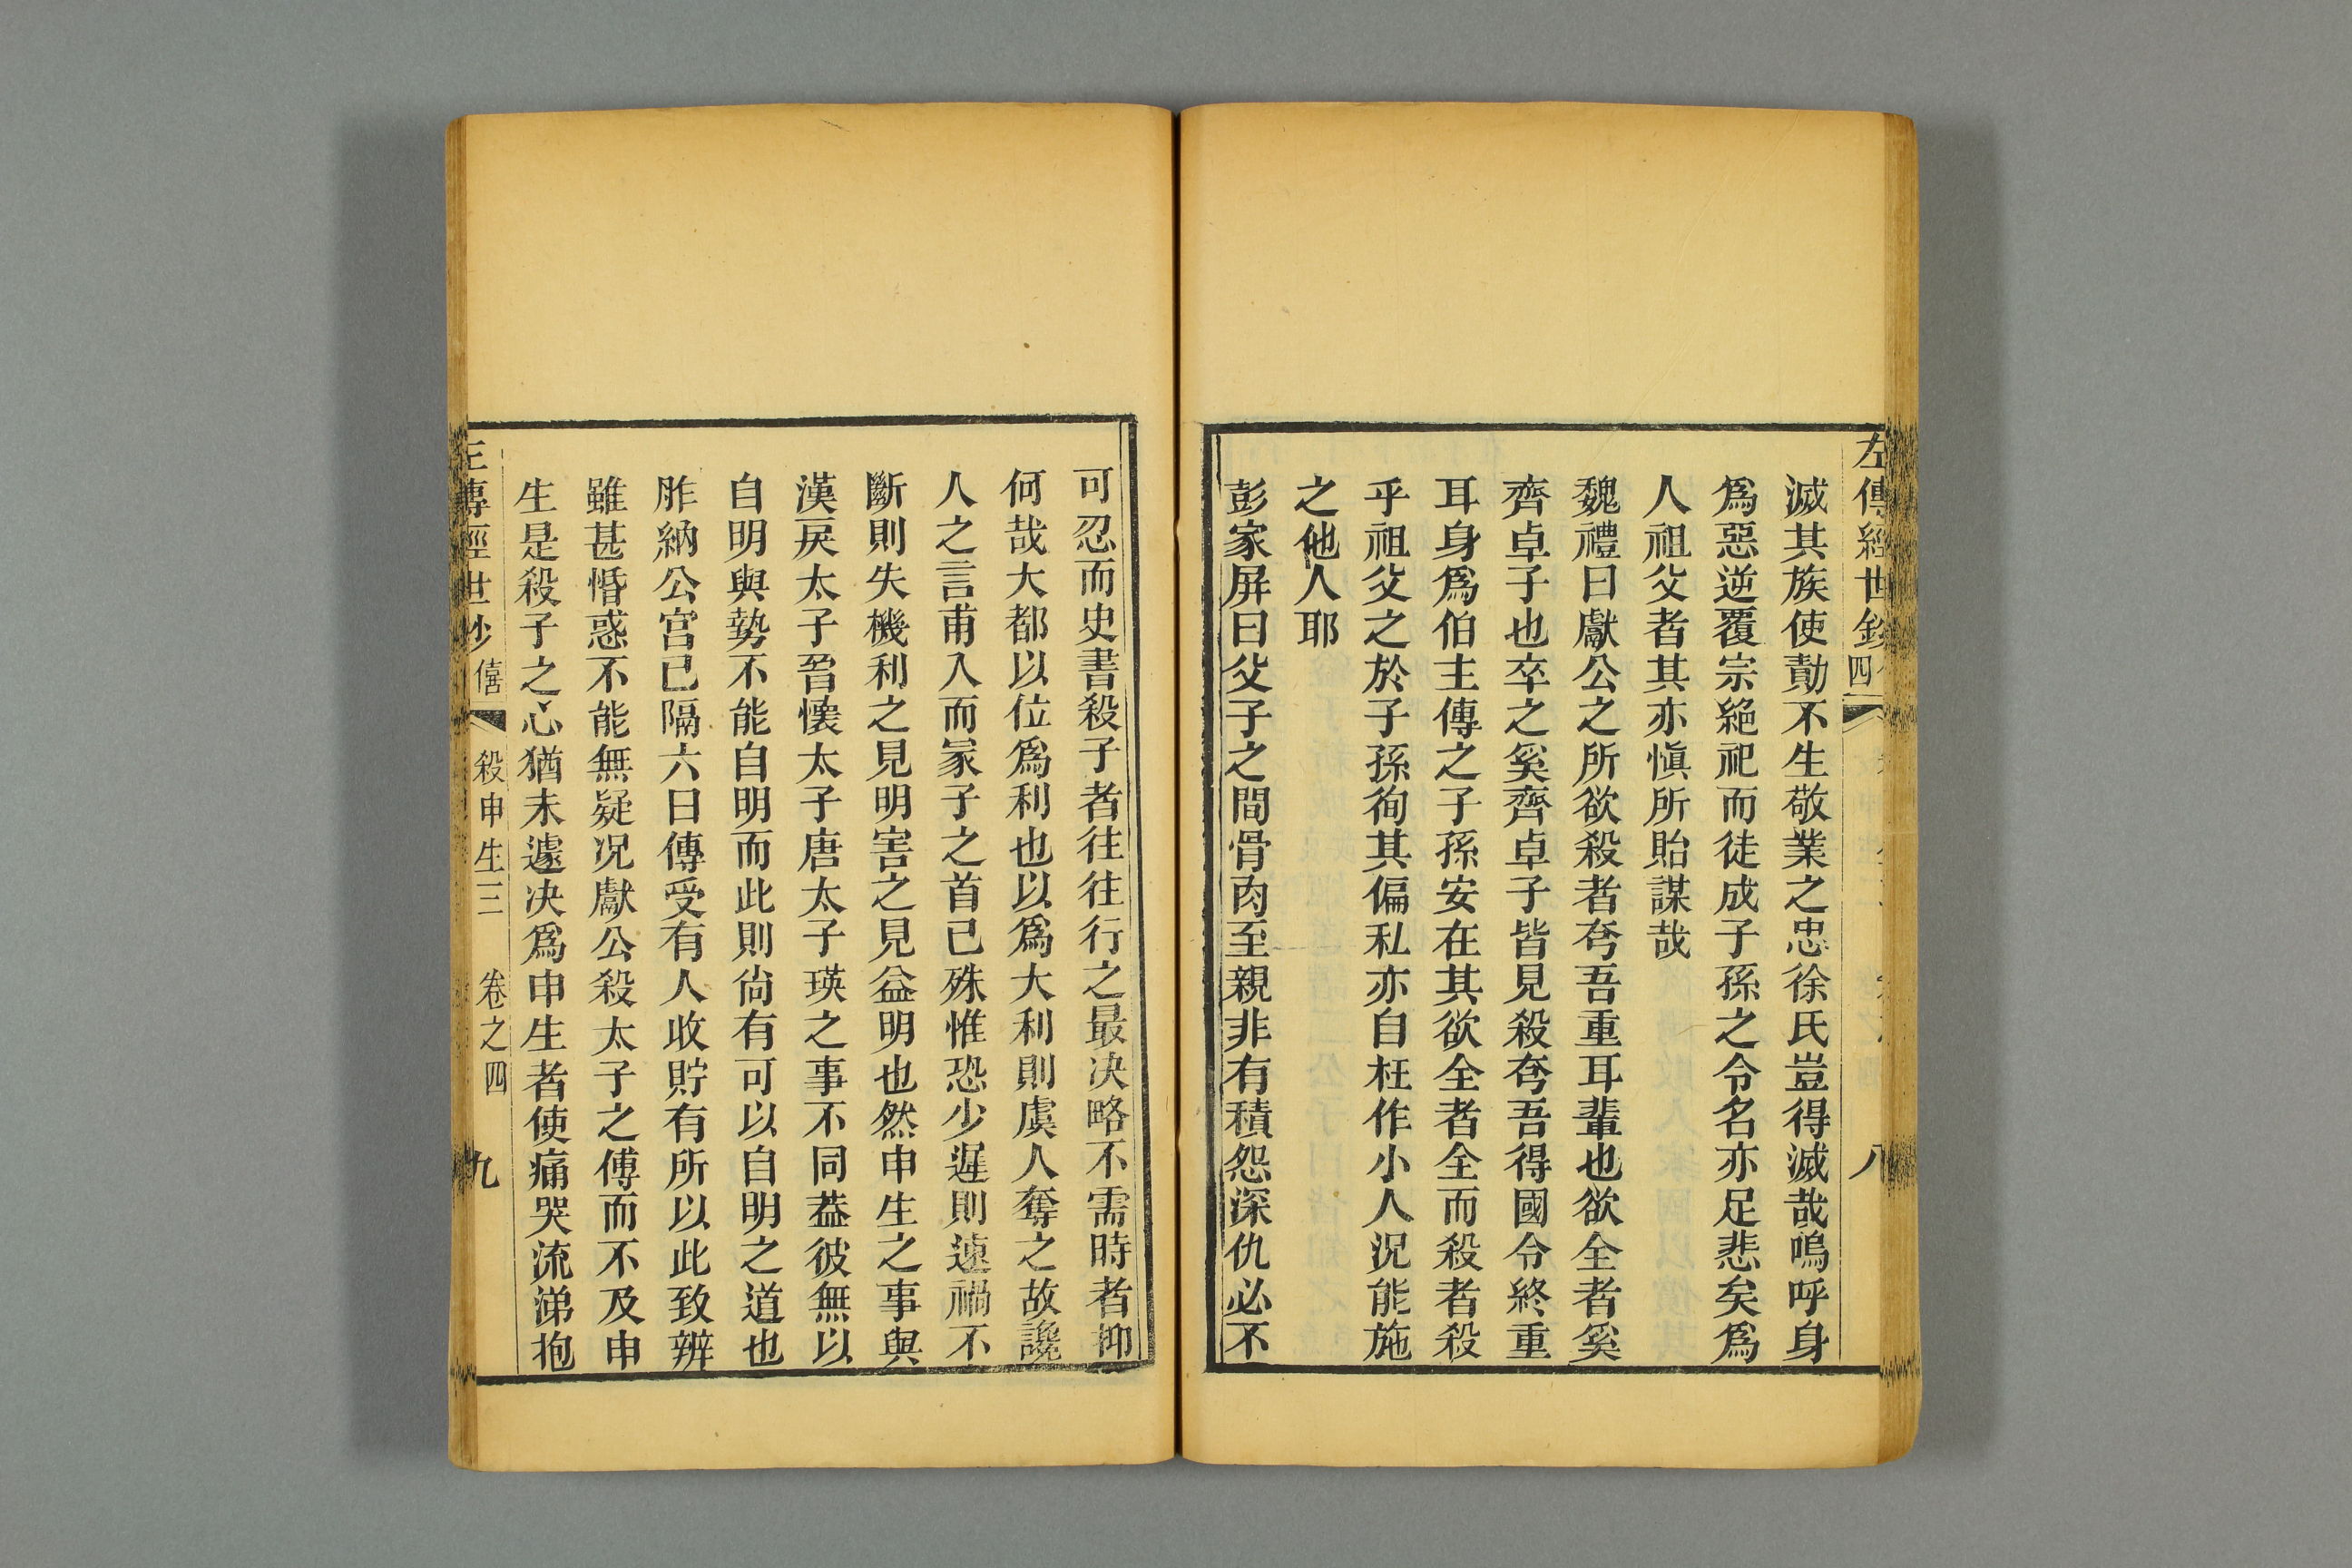 左傳經世鈔
四
八
滅其族使勣不生敬業之忠徐氏豈得滅哉嗚呼身
爲惡逆覆宗絕祀而徒成子孫之令名亦足悲矣爲
人祖父者其亦慎所貽謀哉
魏禮曰獻公之所欲殺者夸吾重耳輩也欲全者奚
齊卓子也卒之奚齊卓子皆見殺夸吾得國令終重
耳身爲伯主傳之子孫安在其欲全者全而殺者殺
乎祖父之於子孫徇其偏私亦自枉作小人況能施
之他人耶
彭家屏曰父子之間骨肉至親非有積怨深仇必不
可忍而史書殺子者往往行之最决略不需時者抑
何哉大都以位爲利也以爲大利則虞人奪之故讒
人之言甫入而冡子之首已殊惟恐少遲則速禍不
斷則失機利之見明害之見益明也然申生之事與
漢戾太子晉懷太子唐太子瑛之事不同葢彼無以
自明與勢不能自明而此則尙有可以自明之道也
胙納公宮已隔六日傳受有人收貯有所以此致辨
雖甚惛惑不能無疑况獻公殺太子之傅而不及申
生是殺子之心猶未遽决爲申生者使痛哭流涕抱
左傳經世鈔
僖
殺申生三
卷之四
九